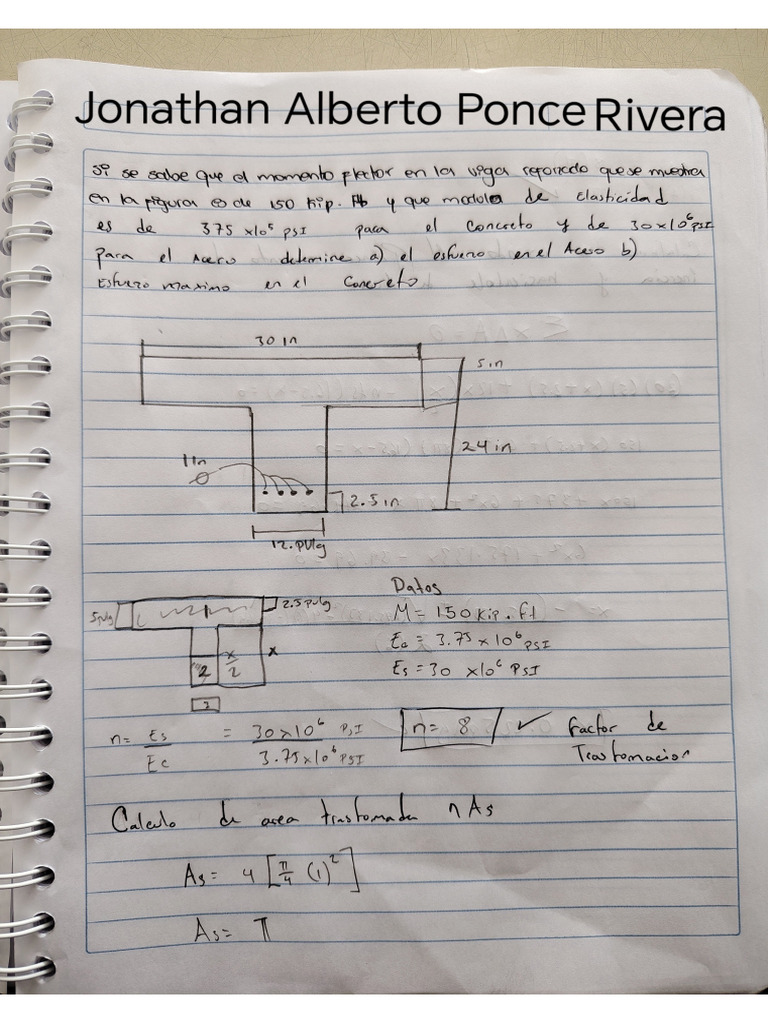 Jonathan Alberto Ponce Rivera
Si se sabe que el momento flector en la viga reforzada que se muestra
en la figura es de 150 Kip. ft y que modulo de Elasticidad
es de 375 x10⁵ PSI para el concreto y de 30x10⁶ PSI
para el Acero determine a) el esfuerzo en el Acero b)
Esfuerzo maximo en el Concreto
30 in
5 in
24 in
1 in
2.5 in
12. pulg
Datos
5 pulg
2.5 pulg
M = 150 Kip. ft
x/2
x
2
Ec = 3.75 x 10⁶ PSI
Es = 30 x10⁶ PSI
n = Es/Ec = 30x10⁶ PSI / 3.75x10⁶ PSI
n = 8 ✓ factor de
Trasformacion
Calculo de area trasformada nAs
As = 4 [π/4 (1)²]
As = π